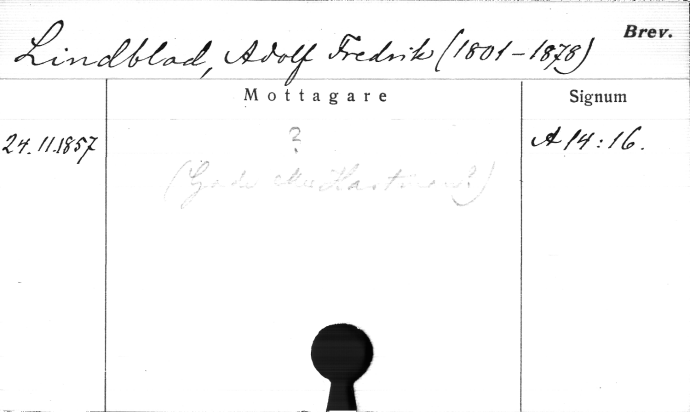 Brev.
Lindblad, Adolf Fredrik (1801-1878)
Mottagare
Signum
24.11.1857
?
A 14:16.
(Gade